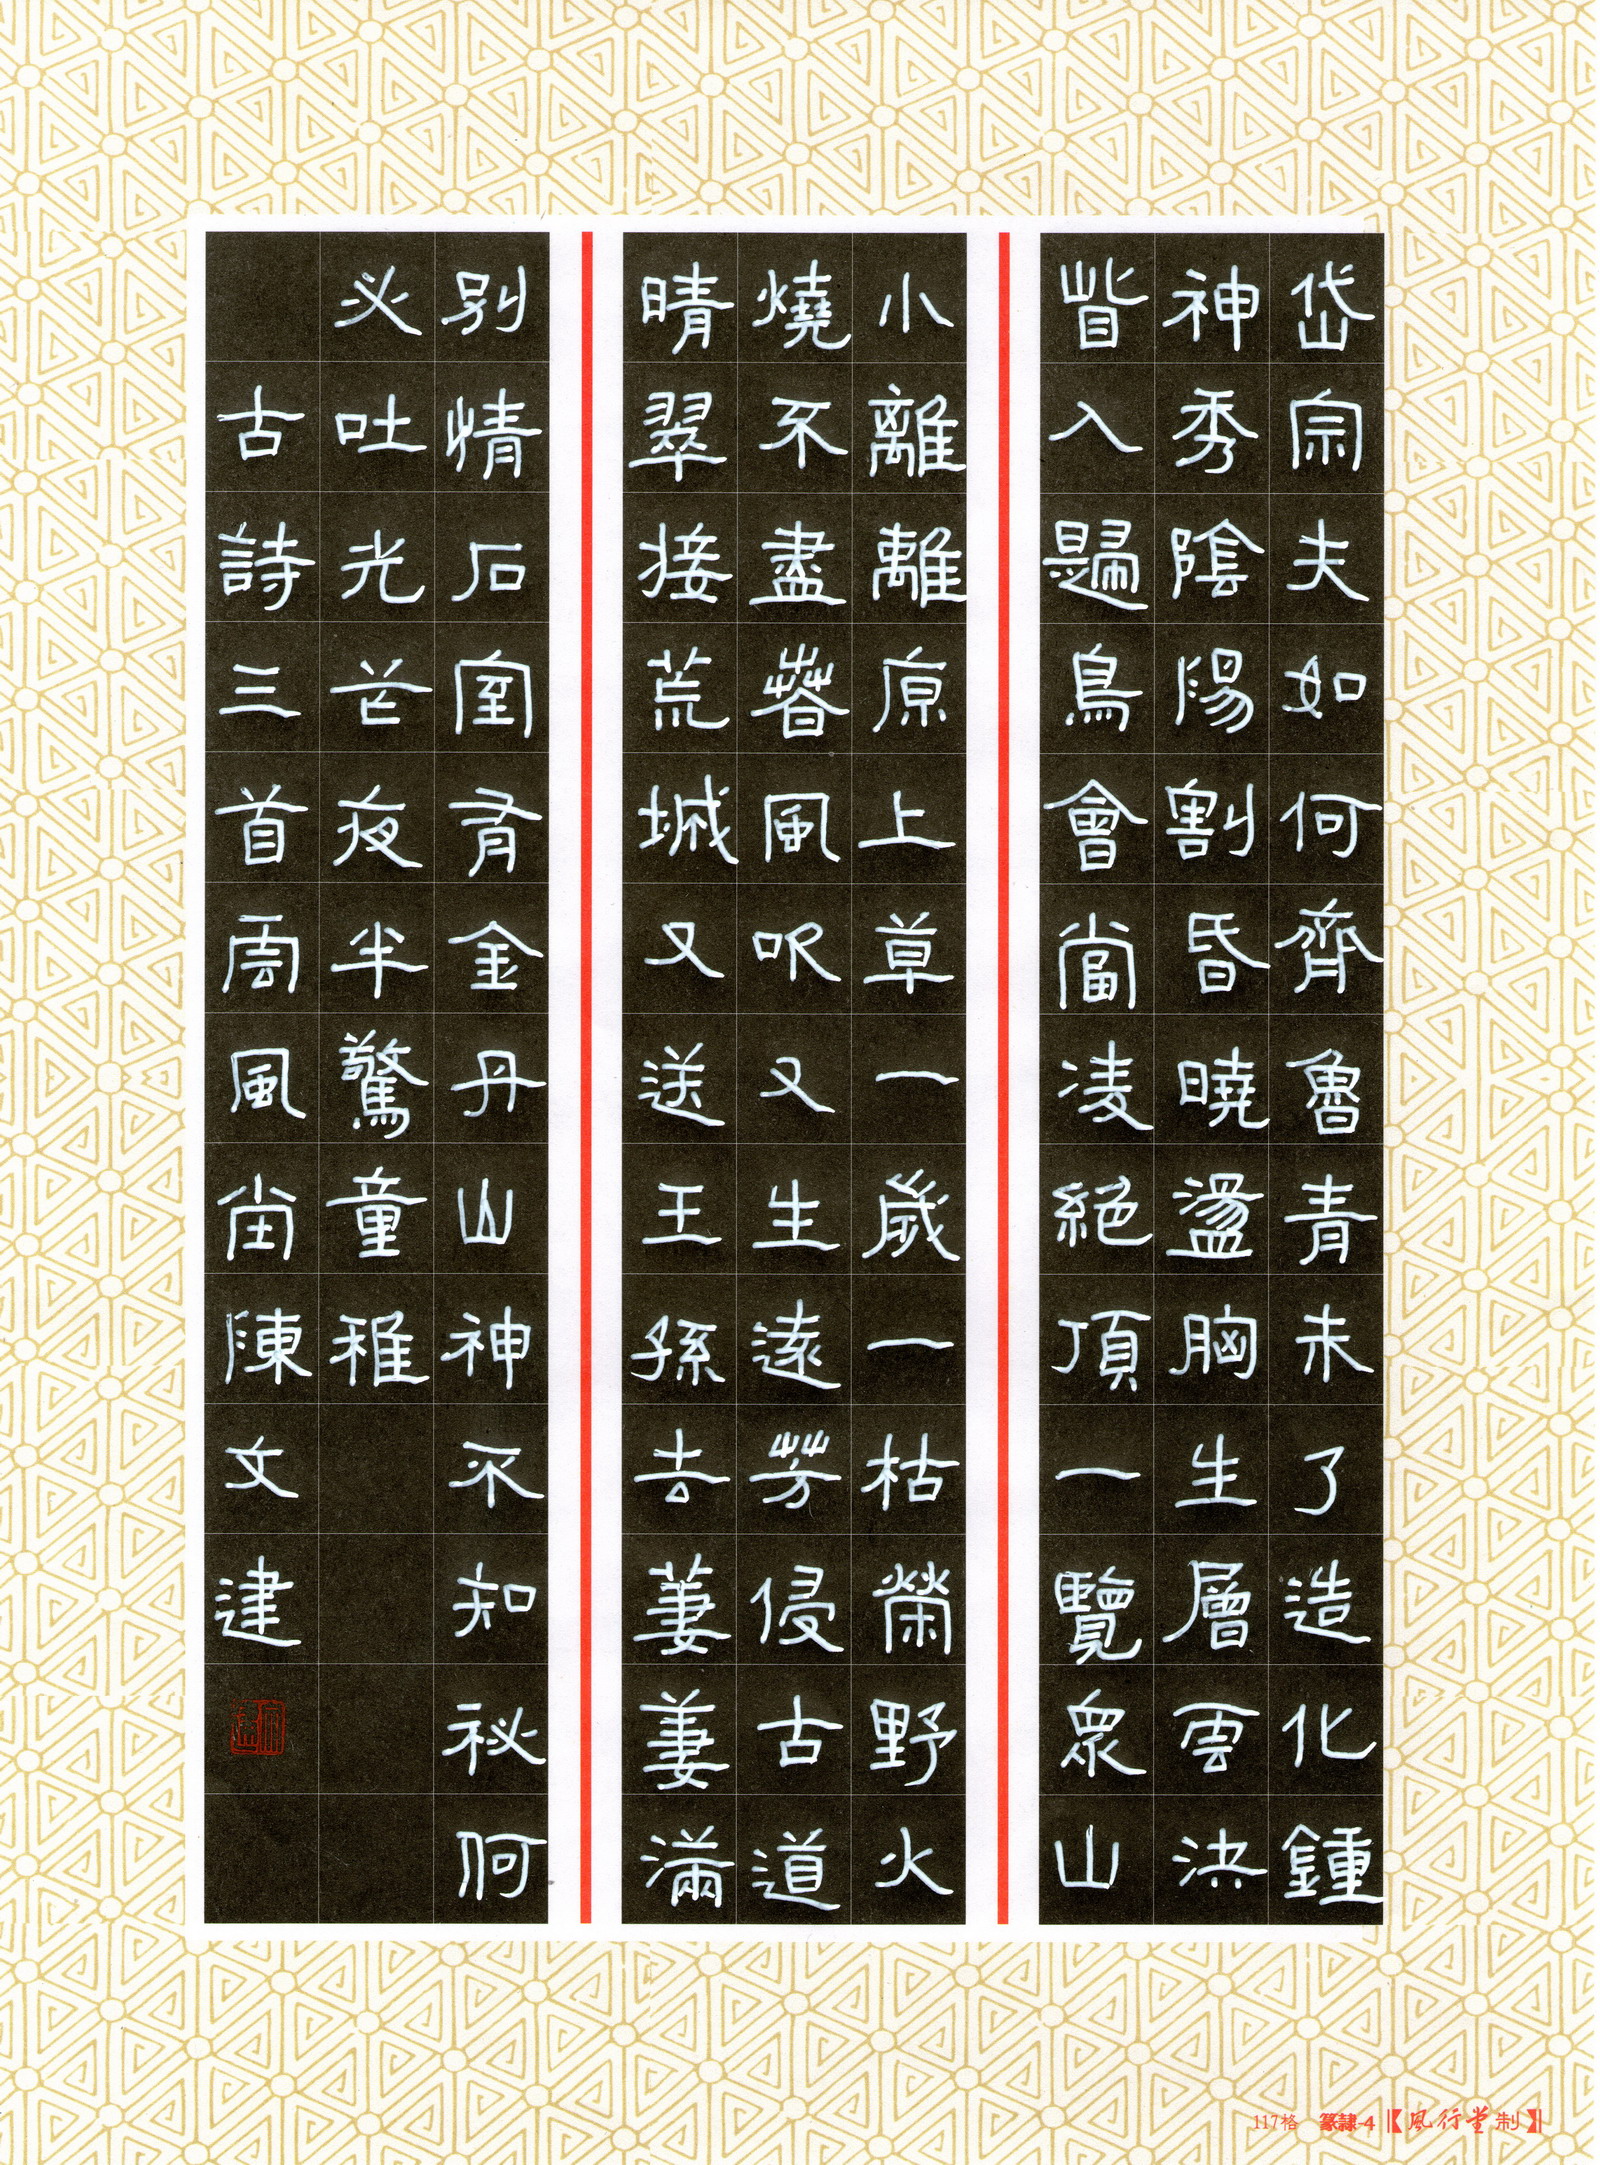 岱宗夫如何齊魯青未了造化鍾
神秀陰陽割昏曉盪胸生層雲決
眥入歸鳥會當凌絕頂一覽眾山
小離離原上草一歲一枯榮野火
燒不盡春風吹又生遠芳侵古道
晴翠接荒城又送王孫去萋萋滿
別情石室有金丹山神不知祕何
必吐光芒夜半驚童稚
古詩三首雲風堂陳文建
117格 篆隸-4【風行堂制】